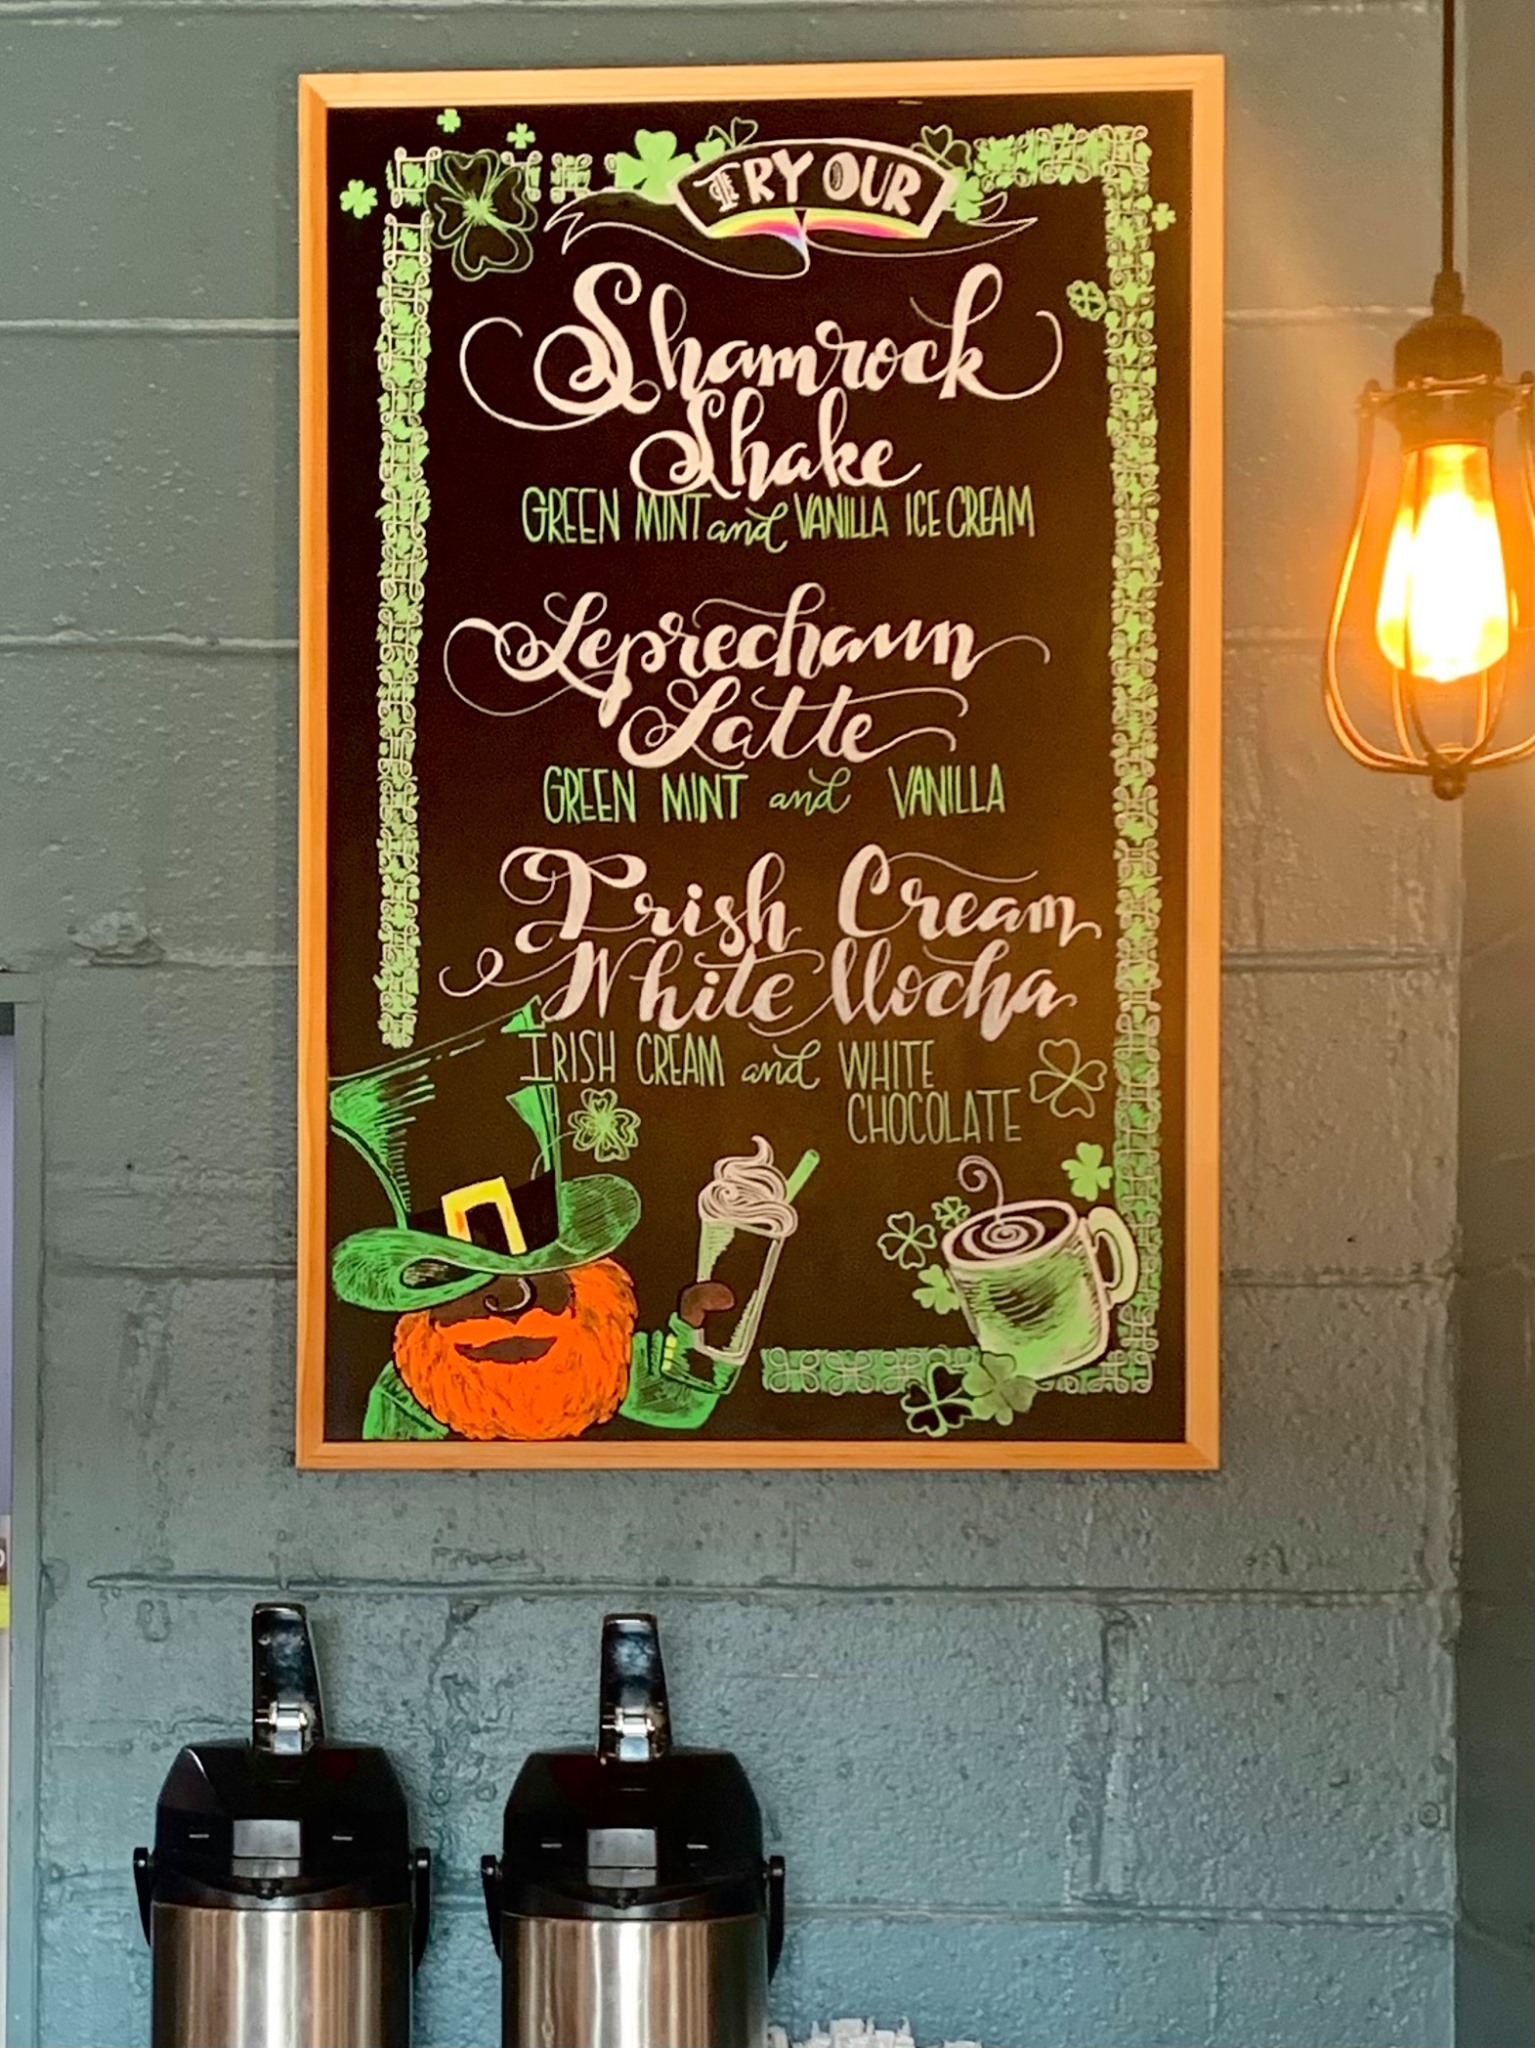 TRY OUR
Shamrock
Shake
GREEN MINT and VANILLA ICE CREAM
Leprechaun
Latte
GREEN MINT and VANILLA
Irish Cream
White Mocha
IRISH CREAM and WHITE
CHOCOLATE